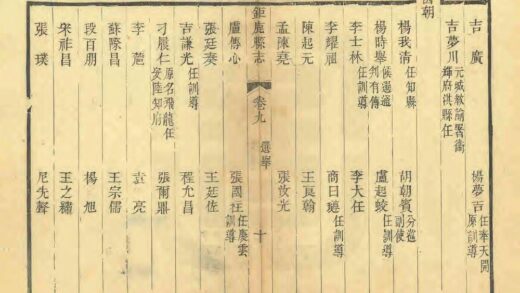 吉廣 楊夢吉任奉天開原訓導
吉夢川元城教諭署衛輝府淇縣任
國朝
楊我清任知縣 胡朝賓分巡副使
楊時舉候選通判有傳 盧起蛟任訓導
李士林任訓導 李大任
李耀祖 商曰璉任訓導
陳起元 王良翰
孟陳堯 張汝光
鉅鹿縣志 卷九 選舉 十
盧傳心 張國柱任慶雲訓導
張廷秦 王廷佐
吉謙光任訓導 程允昌
刁晨仁原名飛龍任安陸知府 張爾鼎
李蓎 袁亮
蘇縣昌 王宗儒
段百朋 楊旭
宋祚昌 王之繡
張璞 尼先聲